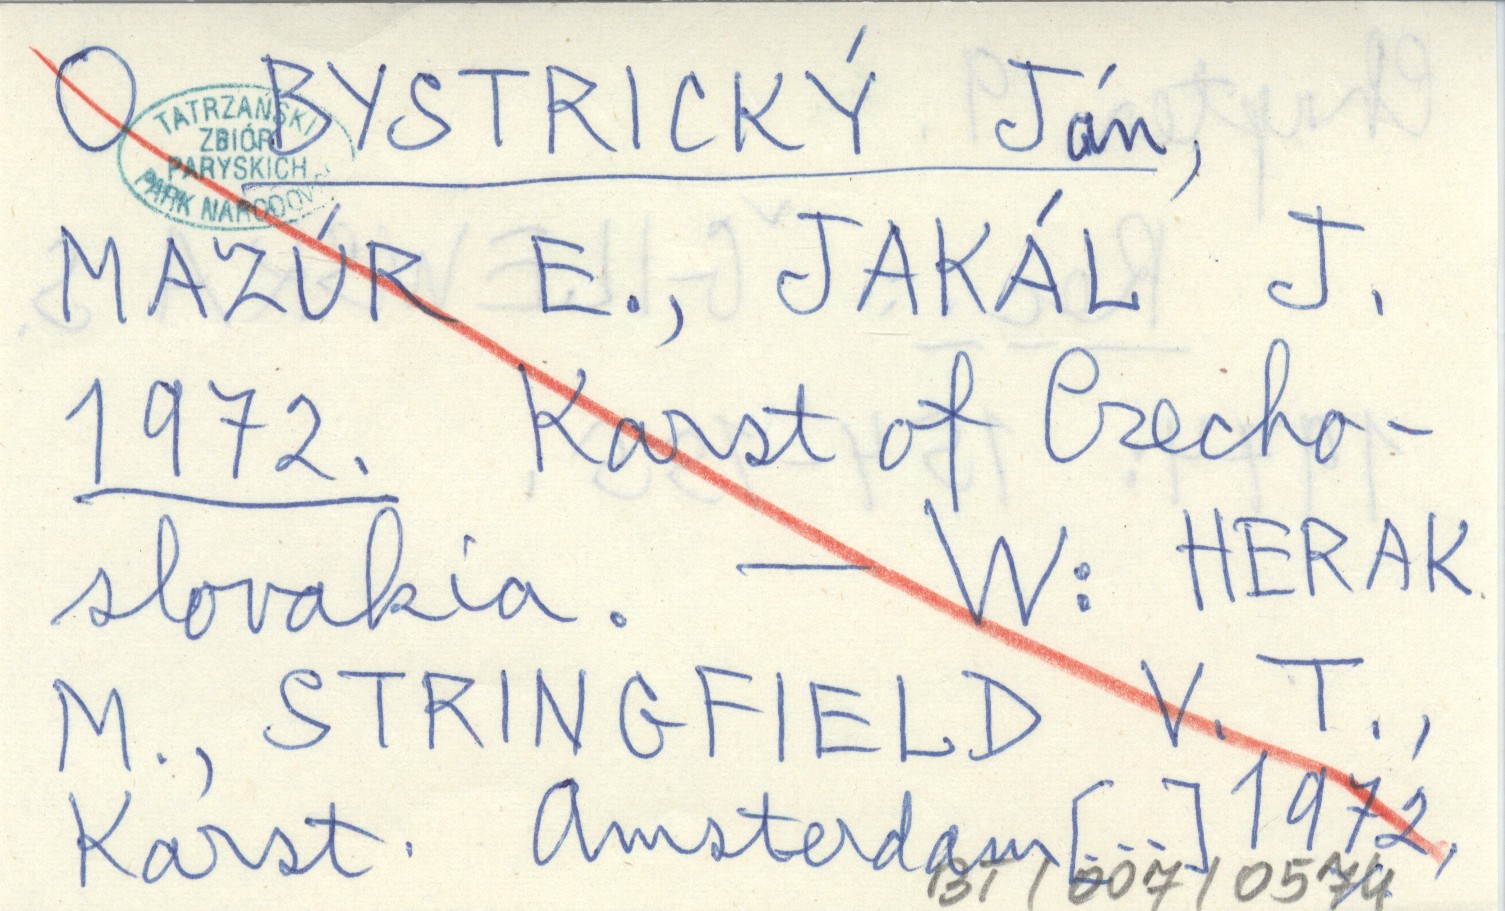 O BYSTRICKÝ Ján,
TATRZAŃSKI
ZBIÓR
PARYSKICH
PARK NARODOWY
MAZÚR E., JAKÁL J.
1972. Karst of Czecho-
slovakia. — W: HERAK
M., STRINGFIELD V. T.,
Karst. Amsterdam [...] 1972,
BT / 007 / 0574